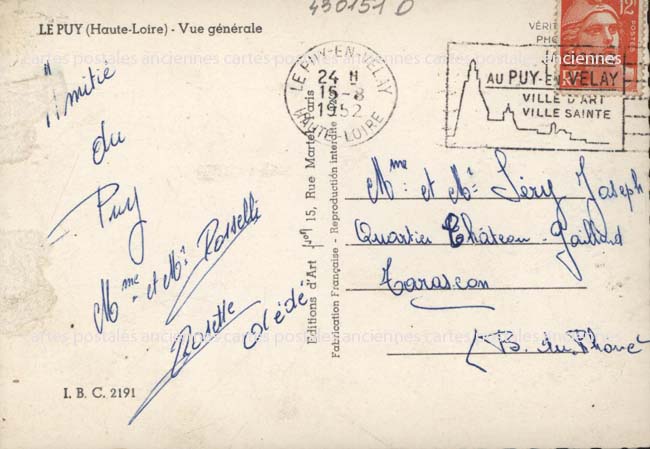 430151 D
LE PUY (Haute-Loire) - Vue générale
Amitié
du
Puy
Mme et Mr Rosselli
Rosette
Editions d'Art "Jof" 15, Rue Martel, Paris
Fabrication Française - Reproduction interdite
LE PUY-EN-VELAY
24 H
15-8
1952
HAUTE-LOIRE
AU PUY-EN-VELAY
VILLE D'ART
VILLE SAINTE
12
Mme et Mr Séry Joseph
Quartier Château-Gaillard
Tarascon
(B. du Rhône)
I. B. C. 2191
cartes postales anciennes cartes postales anciennes cartes postales anciennes
cartes postales anciennes cartes postales anciennes cartes postales anciennes